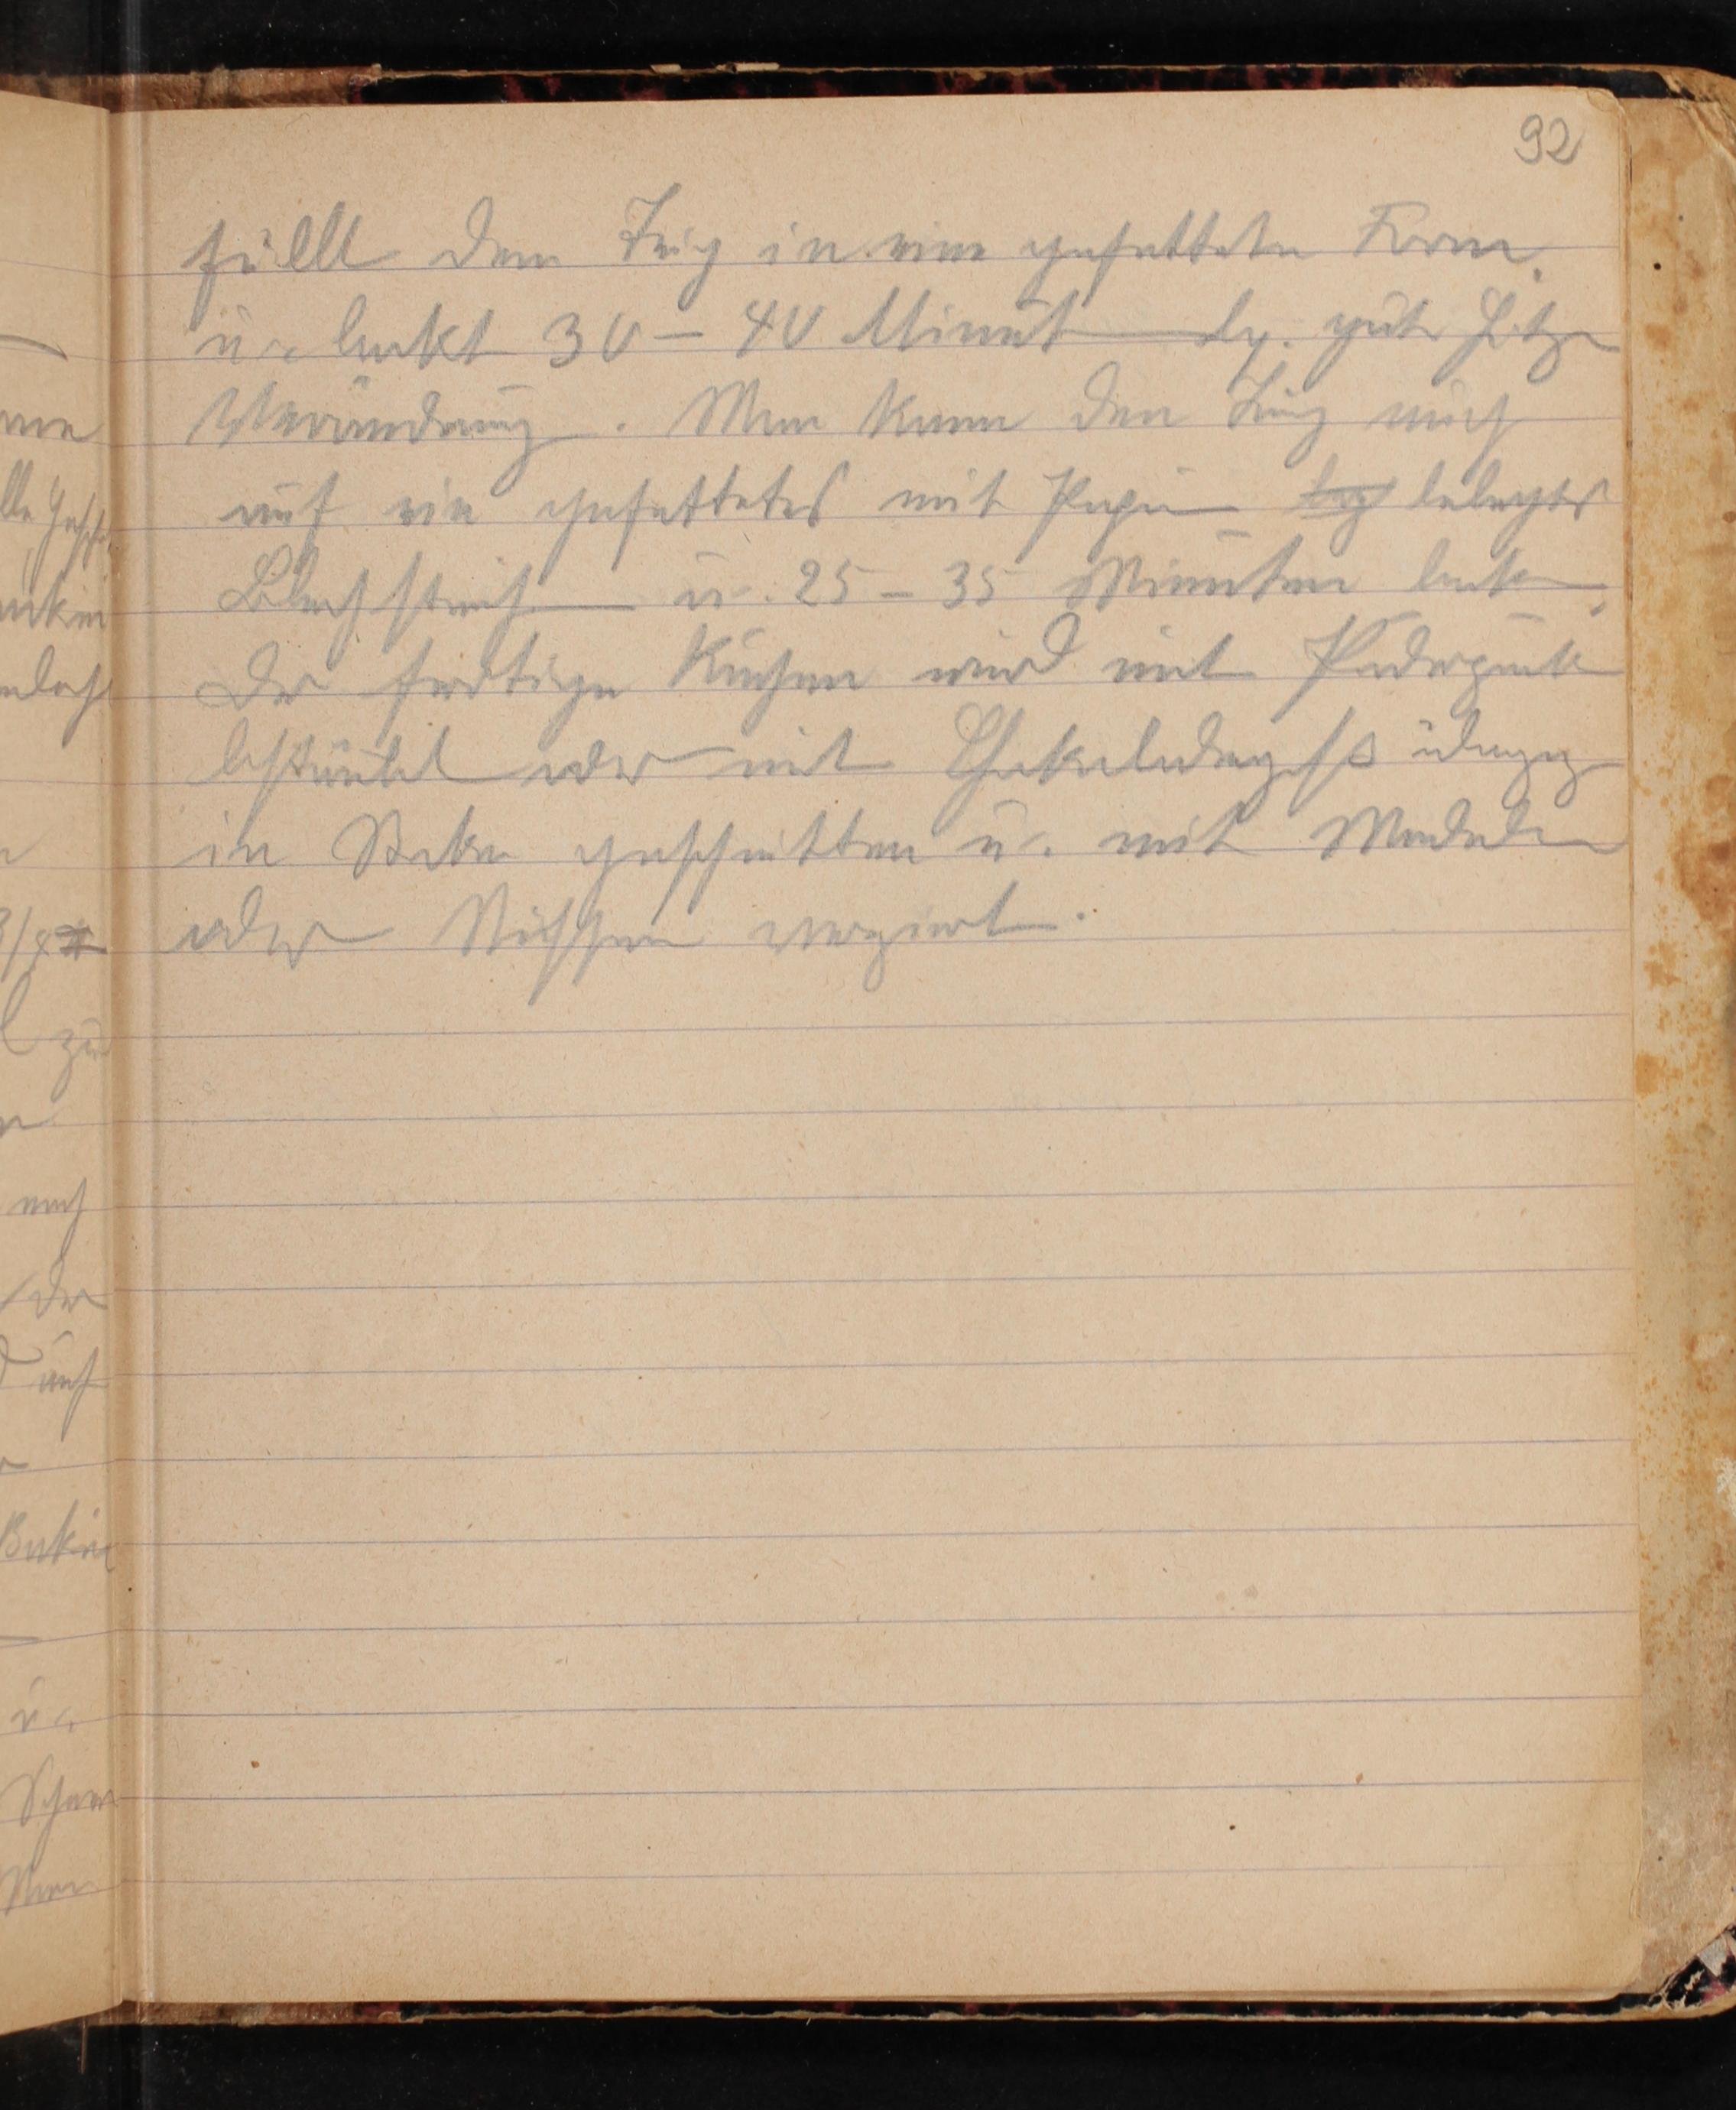 92
füllt den Teig in eine gefettete Form
u. backt 30 – 40 Minut gute Hitze
Man kann den Teig auch
auf ein gefettetes mit Papier belegtes
Blech streichen u. 25 – 35 Minuten backen.
Der fertige Kuchen wird mit Puderzucker
bestäubt oder mit Schokoladenguß überzogen
in Stücke geschnitten u. mit Mandeln
oder Nüssen verziert.